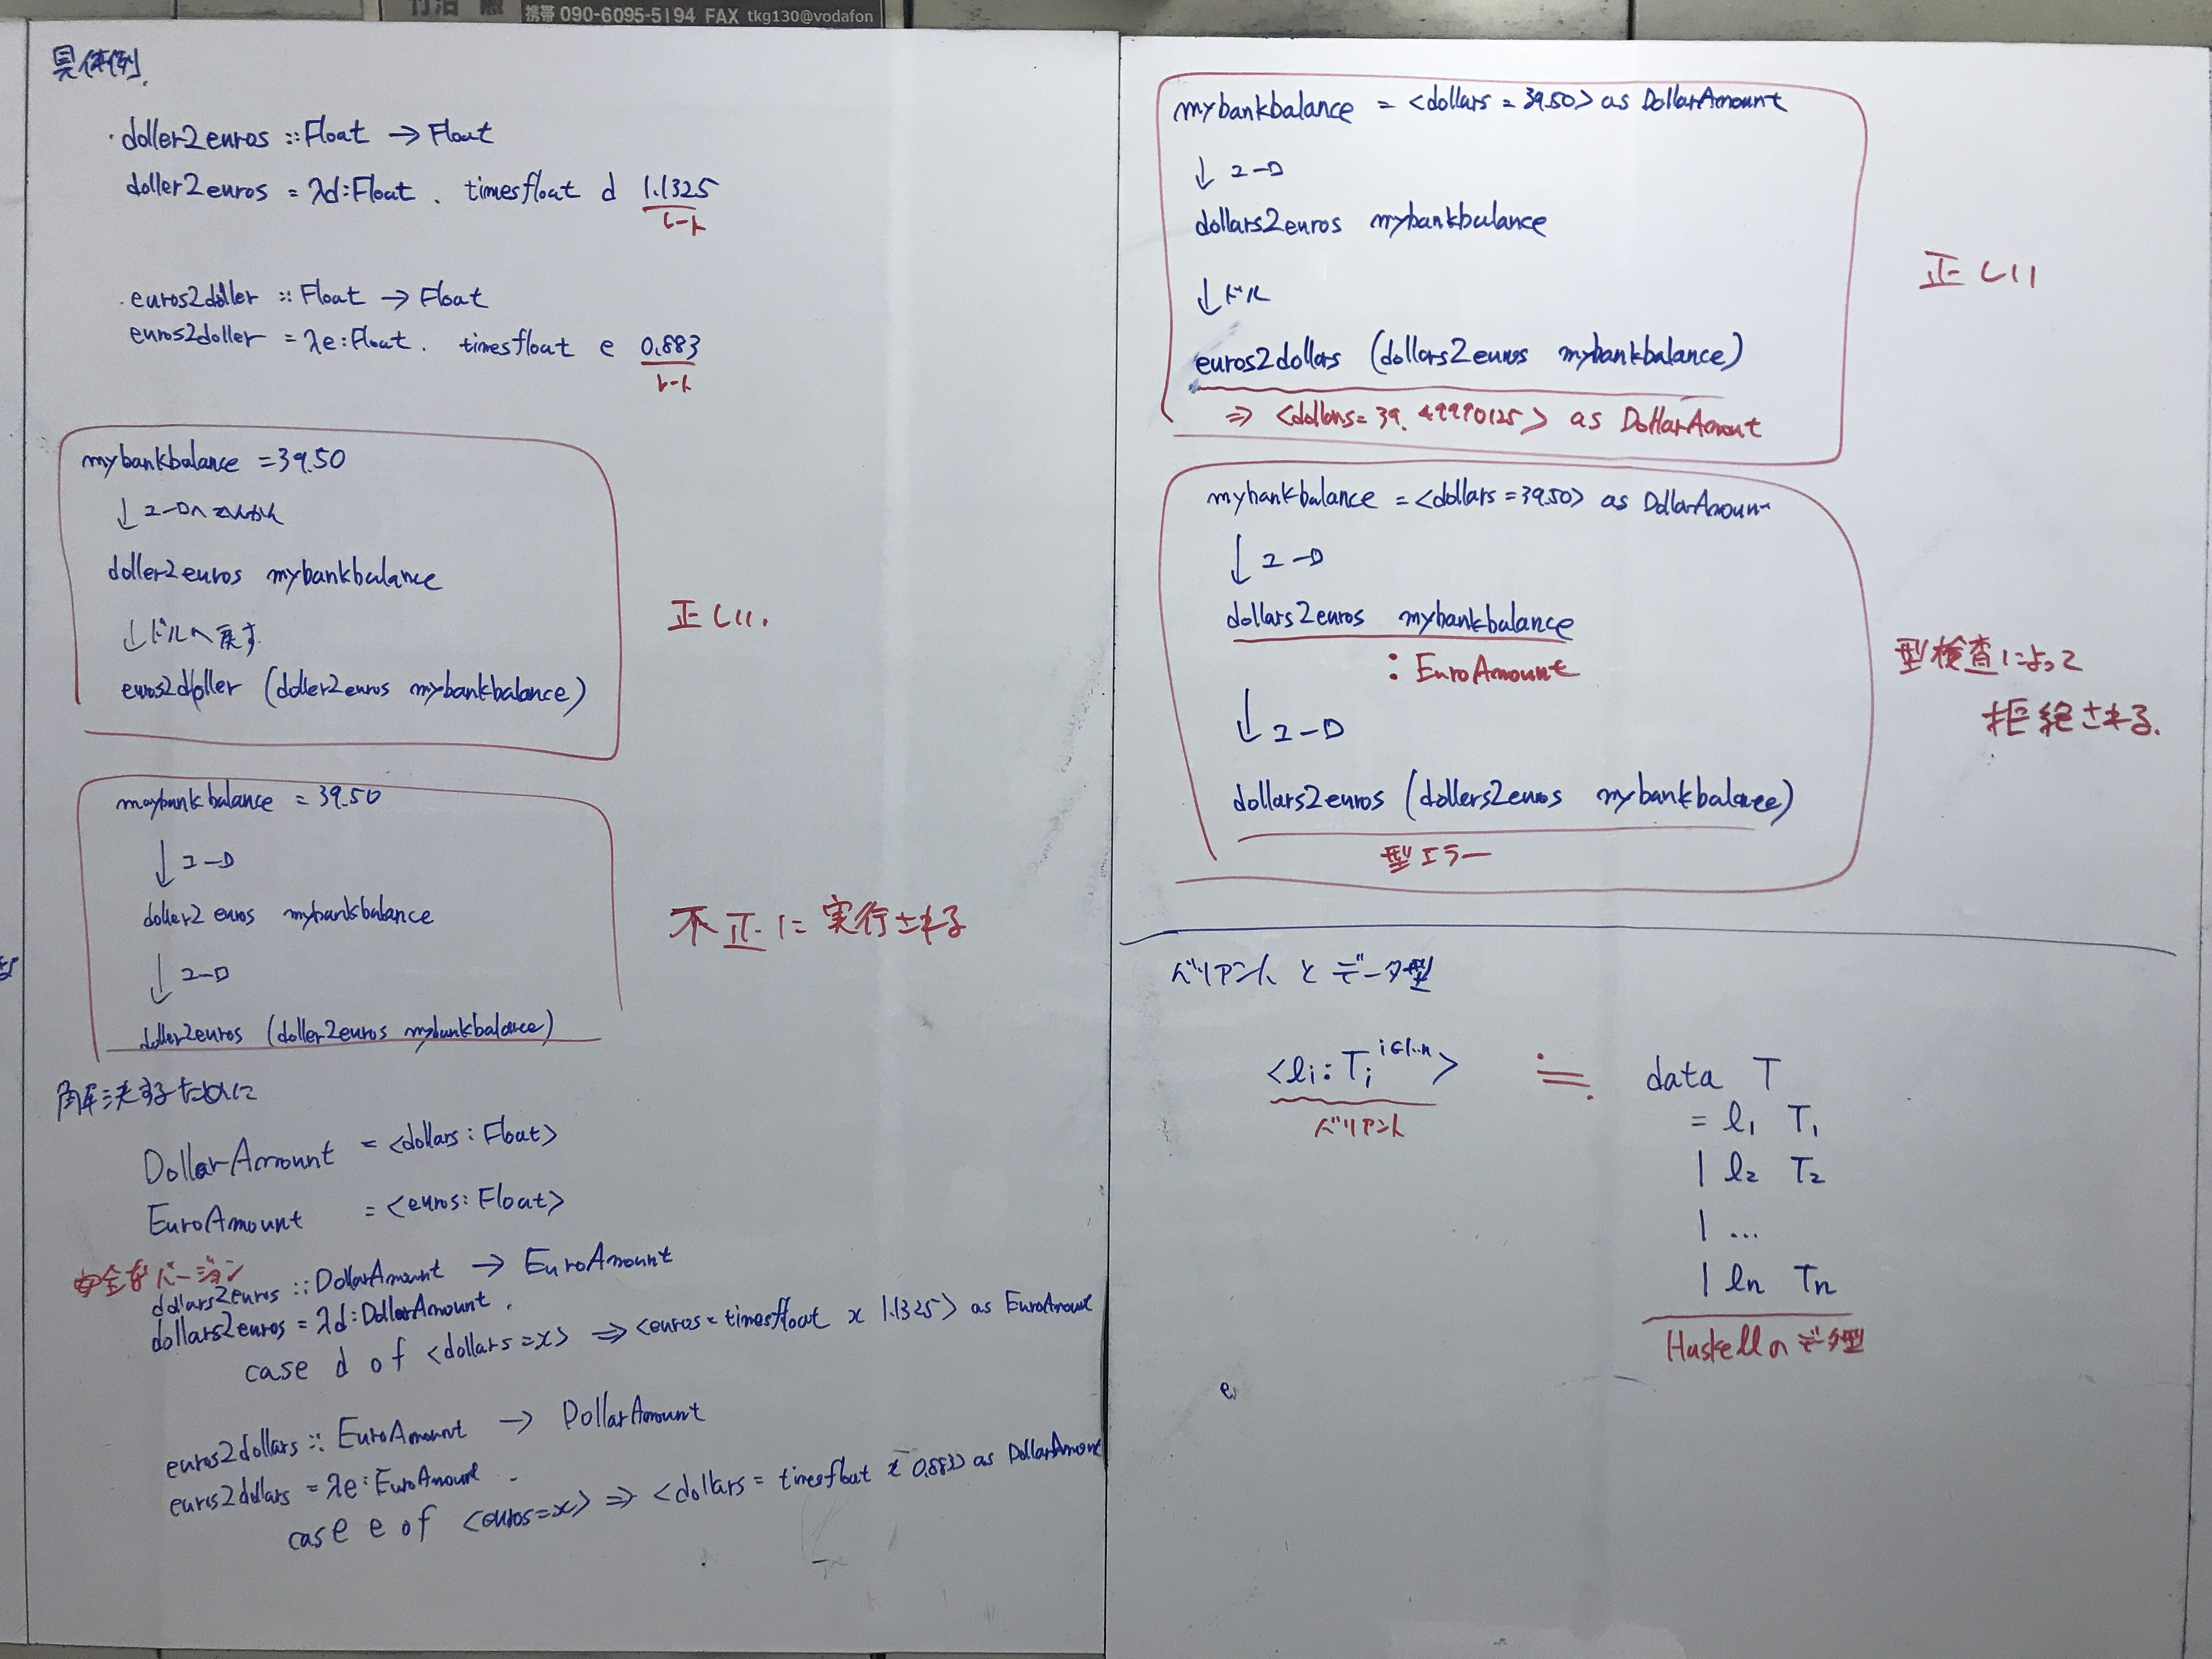 携帯 090-6095-5194 FAX tkg130@vodafon
具体例.
・doller2euros :: Float → Float
doller2euros = λd:Float . timesfloat d 1.1325
レート
・euros2doller :: Float → Float
euros2doller = λe:Float. timesfloat e 0.883
レート
mybankbalance = 39.50
↓ユーロへ
doller2euros mybankbalance
↓ドルへ戻す
euros2doller (doller2euros mybankbalance)
正しい.
maybankbalance = 39.50
↓ユーロ
doller2 euros mybankbalance
↓ユーロ
doller2euros (doller2euros mybankbalance)
不正に実行される
解決するために
DollarAmount = <dollars : Float>
EuroAmount = <euros : Float>
安全なバージョン
dollars2euros :: DollarAmount → EuroAmount
dollars2euros = λd:DollarAmount .
case d of <dollars = x> ⇒ <euros = timesfloat x 1.1325> as EuroAmount
euros2dollars :: EuroAmount → DollarAmount
euros2dollars = λe:EuroAmount .
case e of <euros = x> ⇒ <dollars = timesfloat x 0.883> as DollarAmount
mybankbalance = <dollars = 39.50> as DollarAmount
↓ユーロ
dollars2euros mybankbalance
↓ドル
euros2dollars (dollars2euros mybankbalance)
⇒ <dollars = 39.49990125> as DollarAmount
正しい
mybankbalance = <dollars = 39.50> as DollarAmount
↓ユーロ
dollars2euros mybankbalance
: EuroAmount
↓ユーロ
dollars2euros (dollers2euros mybankbalance)
型エラー
型検査によって
拒絶される.
バリアントとデータ型
<li : Ti i∈1..n> ≒ data T
バリアント
= l1 T1
| l2 T2
| ...
| ln Tn
Haskellのデータ型
e